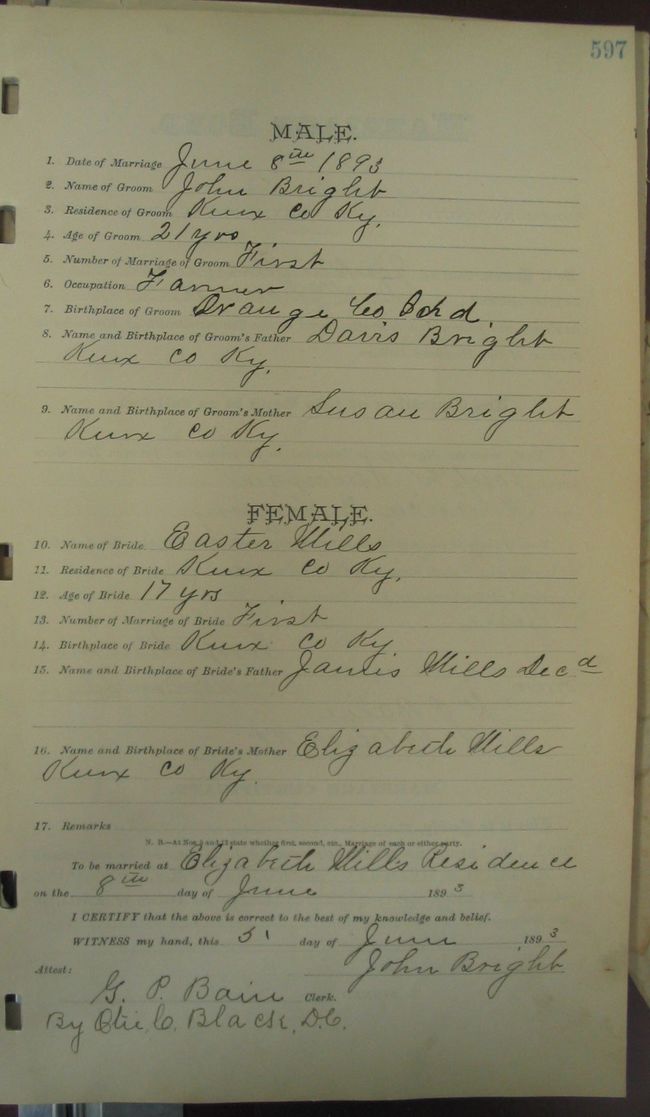 597
MALE.
1. Date of Marriage June 8th 1893
2. Name of Groom John Bright
3. Residence of Groom Knox Co Ky.
4. Age of Groom 21 yrs
5. Number of Marriage of Groom First
6. Occupation Farmer
7. Birthplace of Groom Orange Co Ind
8. Name and Birthplace of Groom's Father Davis Bright
Knox Co Ky.
9. Name and Birthplace of Groom's Mother Susan Bright
Knox Co Ky.
FEMALE.
10. Name of Bride Easter Mills
11. Residence of Bride Knox Co Ky.
12. Age of Bride 17 yrs
13. Number of Marriage of Bride First
14. Birthplace of Bride Knox Co Ky
15. Name and Birthplace of Bride's Father James Mills Decd
16. Name and Birthplace of Bride's Mother Elizabeth Mills
Knox Co Ky.
17. Remarks
N. B.—At Nos. 5 and 13 state whether first, second, etc., Marriage of each or either party.
To be married at Elizabeth Mills Residence
on the 8th day of June 1893
I CERTIFY that the above is correct to the best of my knowledge and belief.
WITNESS my hand, this 5 day of June 1893
John Bright
Attest:
G. P. Bain Clerk.
By C. Black, D.C.